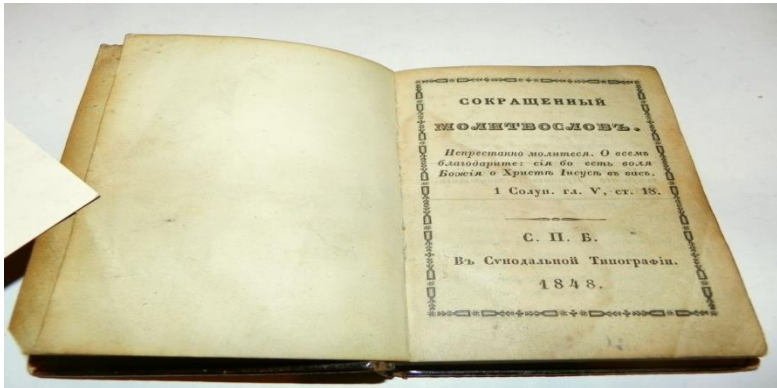 СОКРАЩЕННЫЙ
МОЛИТВОСЛОВЪ.
Непрестанно молитеся. О всемъ
благодарите: сія бо есть воля
Божія о Христѣ Іисусѣ въ васъ.
1 Солун. гл. V, ст. 18.
С. П. Б.
Въ Сѵнодальной Типографіи.
1848.